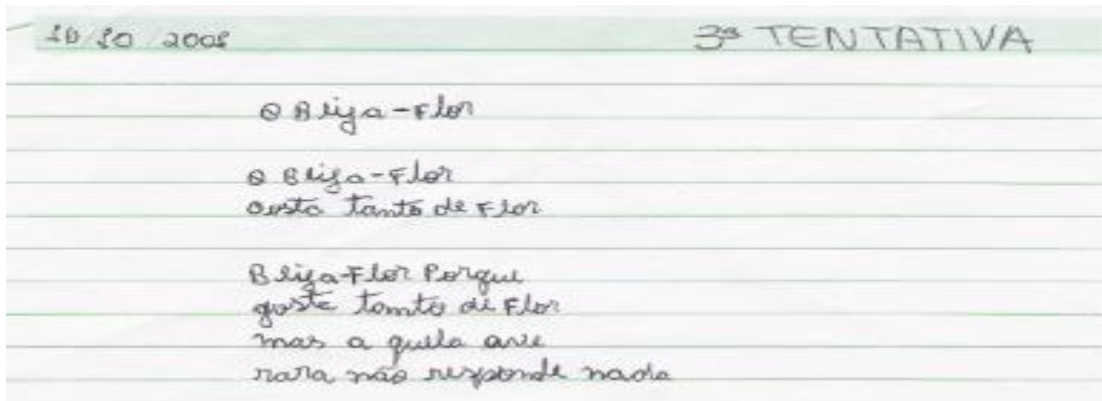 10/10/2008 3ª TENTATIVA
O Beija-Flor
O Beija-Flor
Gosta tanto de Flor
Beija-Flor Porque
gosta tanto de Flor
mas a quela ave
rara não responde nada